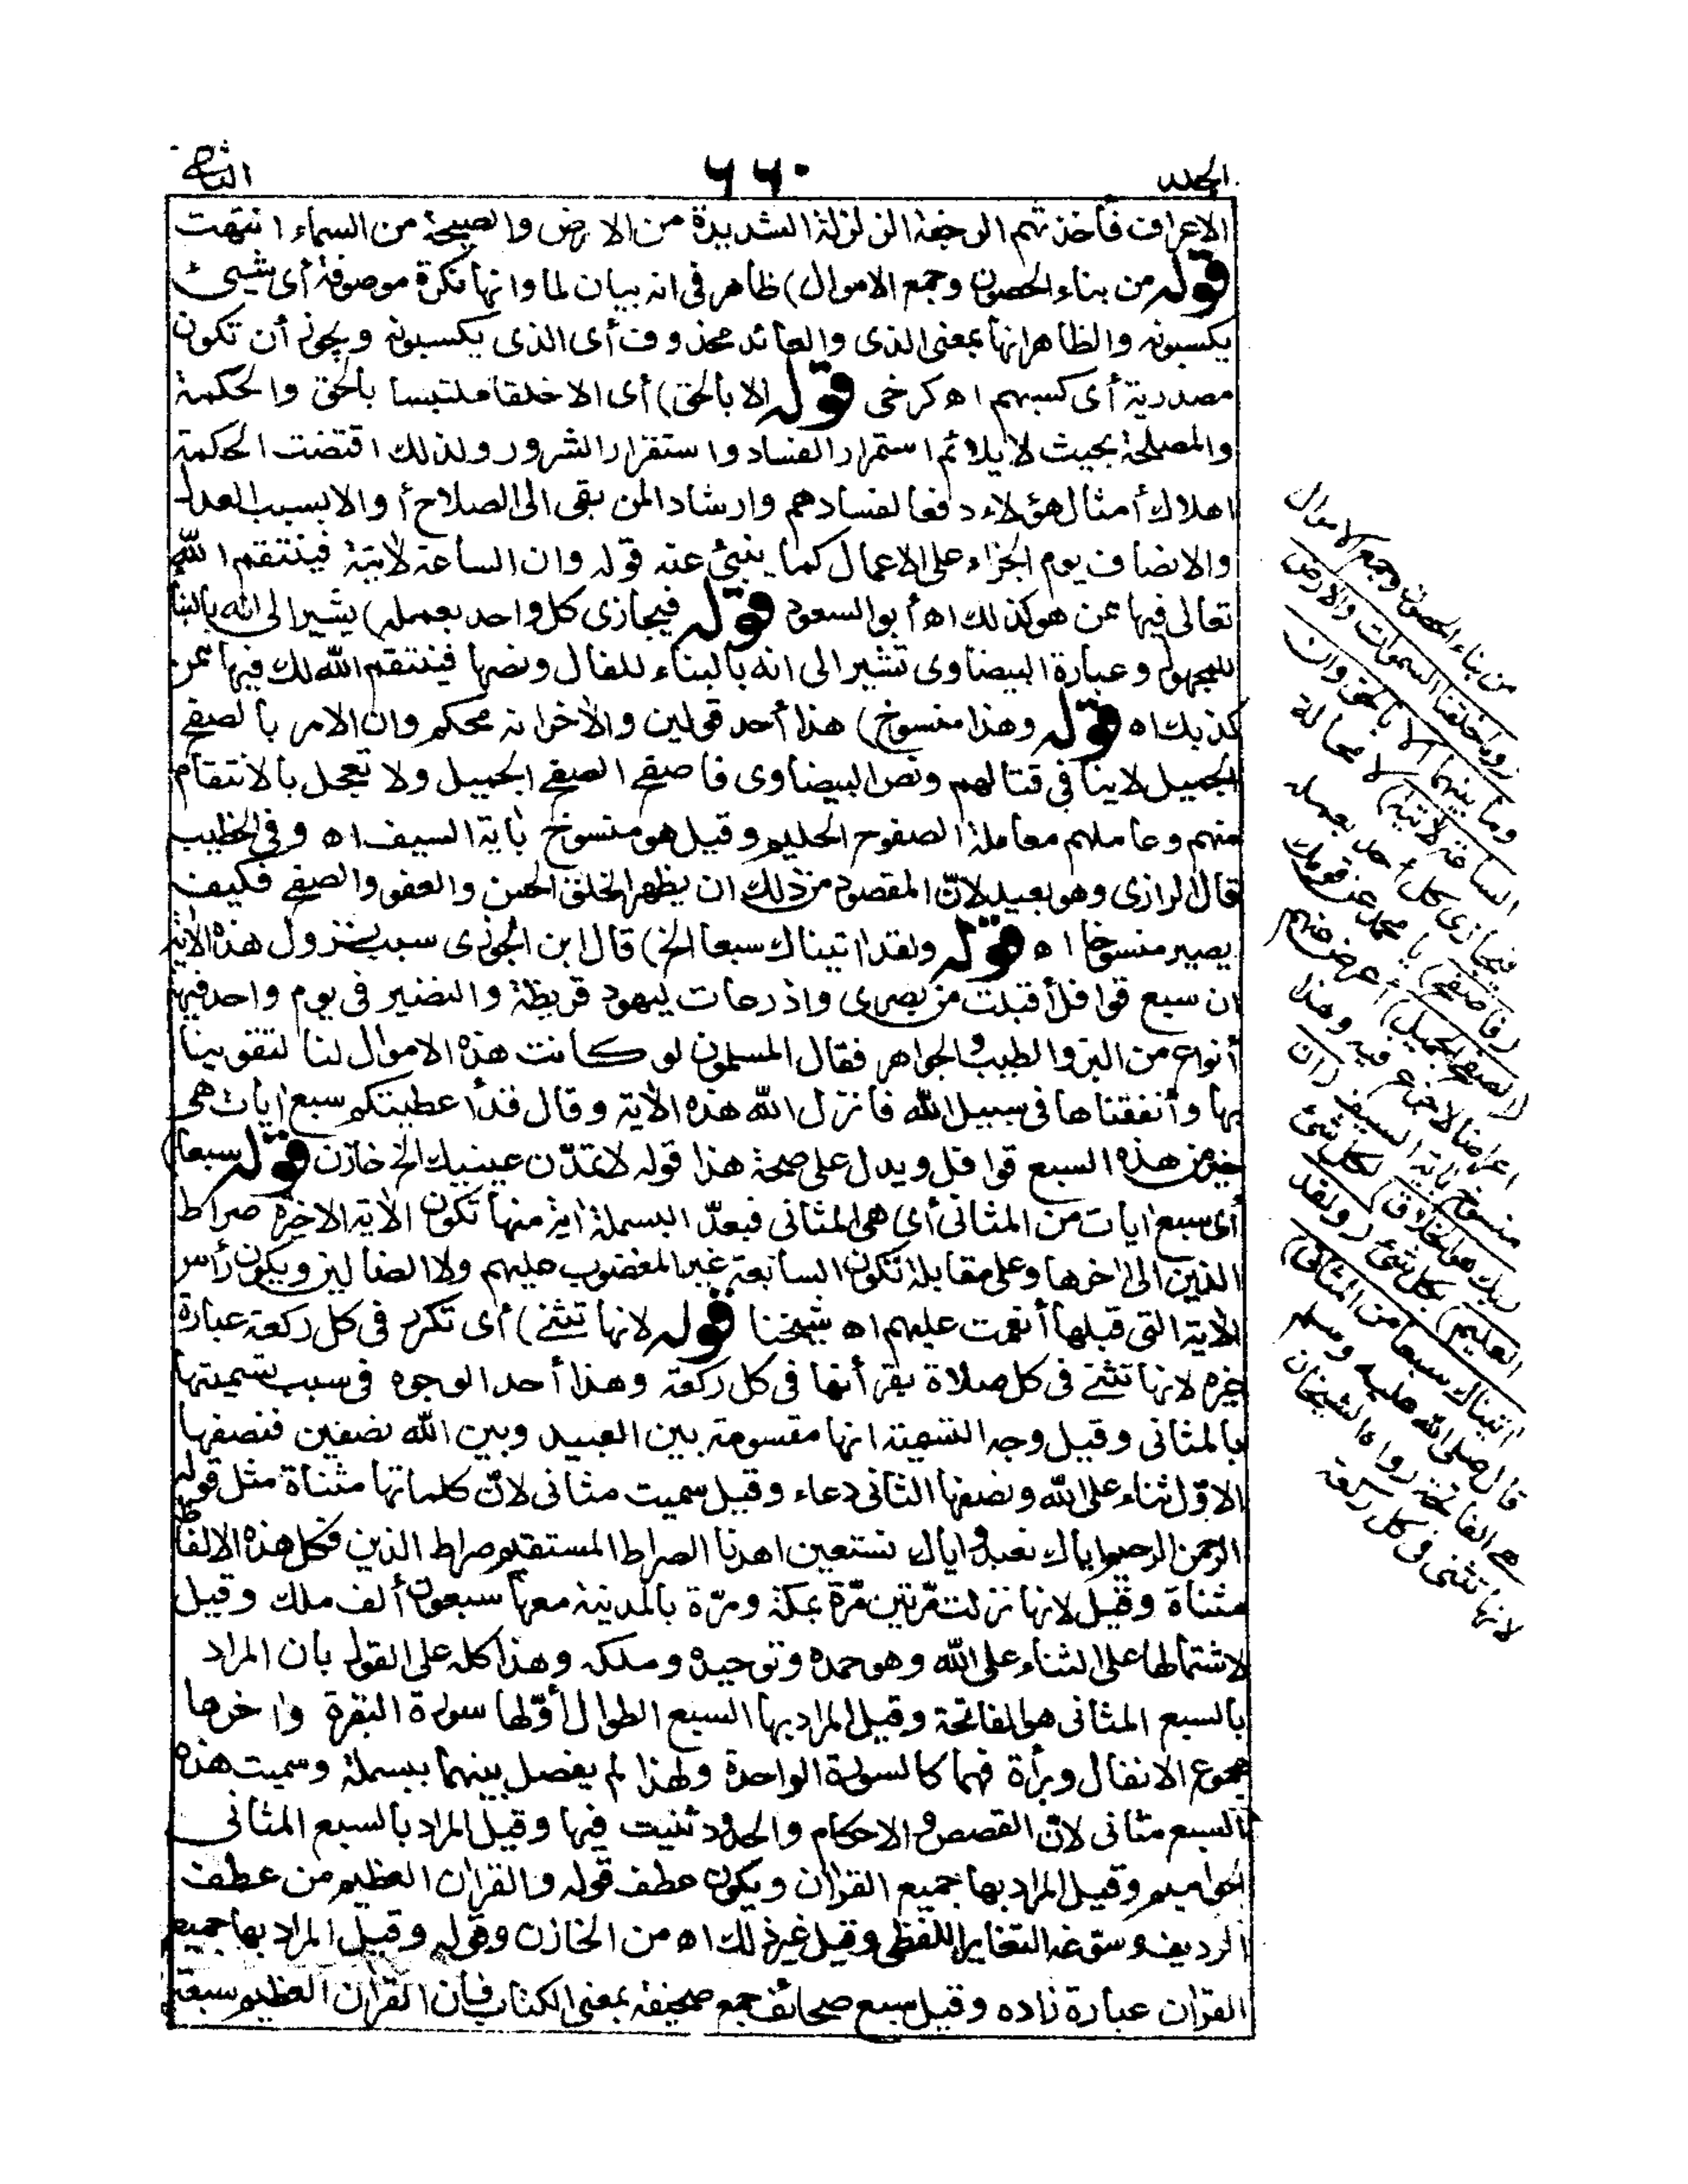 الجلد
٦٦٠
الثانى
الاعراف فأخذتهم الرجفة الزلزلة الشديدة من الارض والصيحة من السماء انتهت
قوله من بناء الحصون وجمع الاموال) ظاهر فى انه بيان لما وانها نكرة موصوفة أى شيئ
يكسبونه والظاهر انها بمعنى الذى والعائد محذوف أى الذى يكسبونه ويجوز أن تكون
مصدرية أى كسبهم اه كرخى قوله الا بالحق) أى الا خلقا ملتبسا بالحق والحكمة
والمصلحة بحيث لا يلائم استمرار الفساد واستقرار الشرور ولذلك اقتضت الحكمة
اهلاك أمثال هؤلاء دفعا لفسادهم وارشادا لمن بقى الى الصلاح أو الا بسبب العدل
والانصاف يوم الجزاء على الاعمال كما ينبئ عنه قوله وان الساعة لآتية فينتقم الله
تعالى فيها ممن هو كذلك اه أبو السعود قوله فيجازى كل واحد بعمله) يشير الى انه بالبنا
للمجهول وعبارة البيضاوى تشير الى انه بالبناء للفاعل ونصها فينتقم الله لك فيها ممن
كذبك اه قوله وهذا منسوخ) هذا أحد قولين والآخر انه محكم وان الامر بالصفح
الجميل لا ينافى قتالهم ونص البيضاوى فاصفح الصفح الجميل ولا تعجل بالانتقام
منهم وعاملهم معاملة الصفوح الحليم وقيل هو منسوخ بآية السيف اه وفى الخطيب
قال الرازى وهو بعيد لانّ المقصود من ذلك ان يظهر الخلق الحسن والعفو والصفح فكيف
يصير منسوخا اه قوله ولقد اتيناك سبعا الخ) قال ابن الجوزى سبب نزول هذه الآية
ان سبع قوافل أقبلت من بصرى واذرعات ليهود قريظة والنضير فى يوم واحد فيها
أنواع من البز والطيب والجواهر فقال المسلمون لو كانت هذه الاموال لنا لتقوينا
بها وأنفقناها فى سبيل الله فانزل الله هذه الآية وقال قد أعطيتكم سبع آيات هى
خير من هذه السبع قوافل ويدل على صحة هذا قوله لا تمدّن عينيك الخ خازن قوله سبعا)
أى سبع آيات من المثانى أى هى المثانى فبعدّ البسملة آية منها تكون الآية الاخيرة صراط
الذين الى آخرها وعلى مقابله تكون السابعة غير المغضوب عليهم ولا الضالين ويكون رأس
الآية التى قبلها أنعمت عليهم اه شيخنا قوله لانها تثنى) أى تكرر فى كل ركعة عبارة
غيره لانها تثنى فى كل صلاة بقرأتها فى كل ركعة وهذا أحد الوجوه فى سبب تسميتها
بالمثانى وقيل وجه التسمية انها مقسومة بين العبيد وبين الله نصفين فنصفها
الاوّل ثناء على الله ونصفها الثانى دعاء وقيل سميت مثانى لانّ كلماتها مثناة مثل قوله
الرحمن الرحيم اياك نعبد واياك نستعين اهدنا الصراط المستقيم صراط الذين فكل هذه الالفاظ
مثناة وقيل لانها نزلت مرّتين مرّة بمكة ومرّة بالمدينة معها سبعون ألف ملك وقيل
لاشتمالها على الثناء على الله وهو حمده وتوحيده وملكه وهذا كله على القول بان المراد
بالسبع المثانى هو الفاتحة وقيل المراد بها السبع الطوال أوّلها سورة البقرة وآخرها
مجموع الانفال وبرأة فهما كالسورة الواحدة ولهذا لم يفصل بينهما ببسملة وسميت هذه
السبع مثانى لانّ القصص والاحكام والحدود ثنيت فيها وقيل المراد بالسبع المثانى
الحواميم وقيل المراد بها جميع القرآن ويكون عطف قوله والقرآن العظيم من عطف
الرديف وسوّغه التغاير اللفظى وقيل غير ذلك اه من الخازن وقوله وقيل المراد بها جميع
القرآن عبارة زاده وقيل سبع صحائف جمع صحيفة بمعنى الكتاب فان القرآن العظيم سبعة
من بناء الحصون وجمع الاموال
(وما خلقنا السموات والارض
وما بينهما الا بالحق وان
الساعة لآتية) لا محالة
فيجازى كل أحد بعمله
(فاصفح) يا محمد عن قومك
(الصفح الجميل) أعرض عنهم
اعراضا لا جزع فيه وهذا
منسوخ بآية السيف (ان
ربك هو الخلاق) لكل شئ
(العليم) بكل شئ (ولقد
اتيناك سبعا من المثانى)
قال صلى الله عليه وسلم
هى الفاتحة رواه الشيخان
لانها تثنى فى كل ركعة